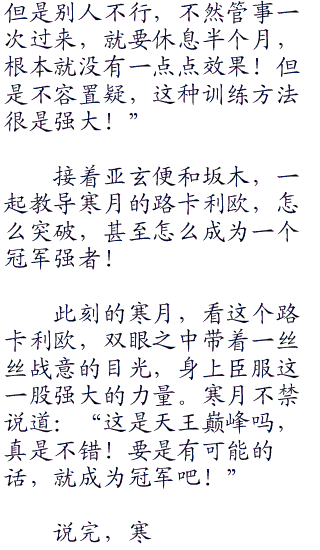 但是别人不行，不然管事一
次过来，就要休息半个月，
根本就没有一点点效果！但
是不容置疑，这种训练方法
很是强大！”
接着亚玄便和坂木，一
起教导寒月的路卡利欧，怎
么突破，甚至怎么成为一个
冠军强者！
此刻的寒月，看这个路
卡利欧，双眼之中带着一丝
丝战意的目光，身上臣服这
一股强大的力量。寒月不禁
说道：“这是天王巅峰吗，
真是不错！要是有可能的
话，就成为冠军吧！”
说完，寒